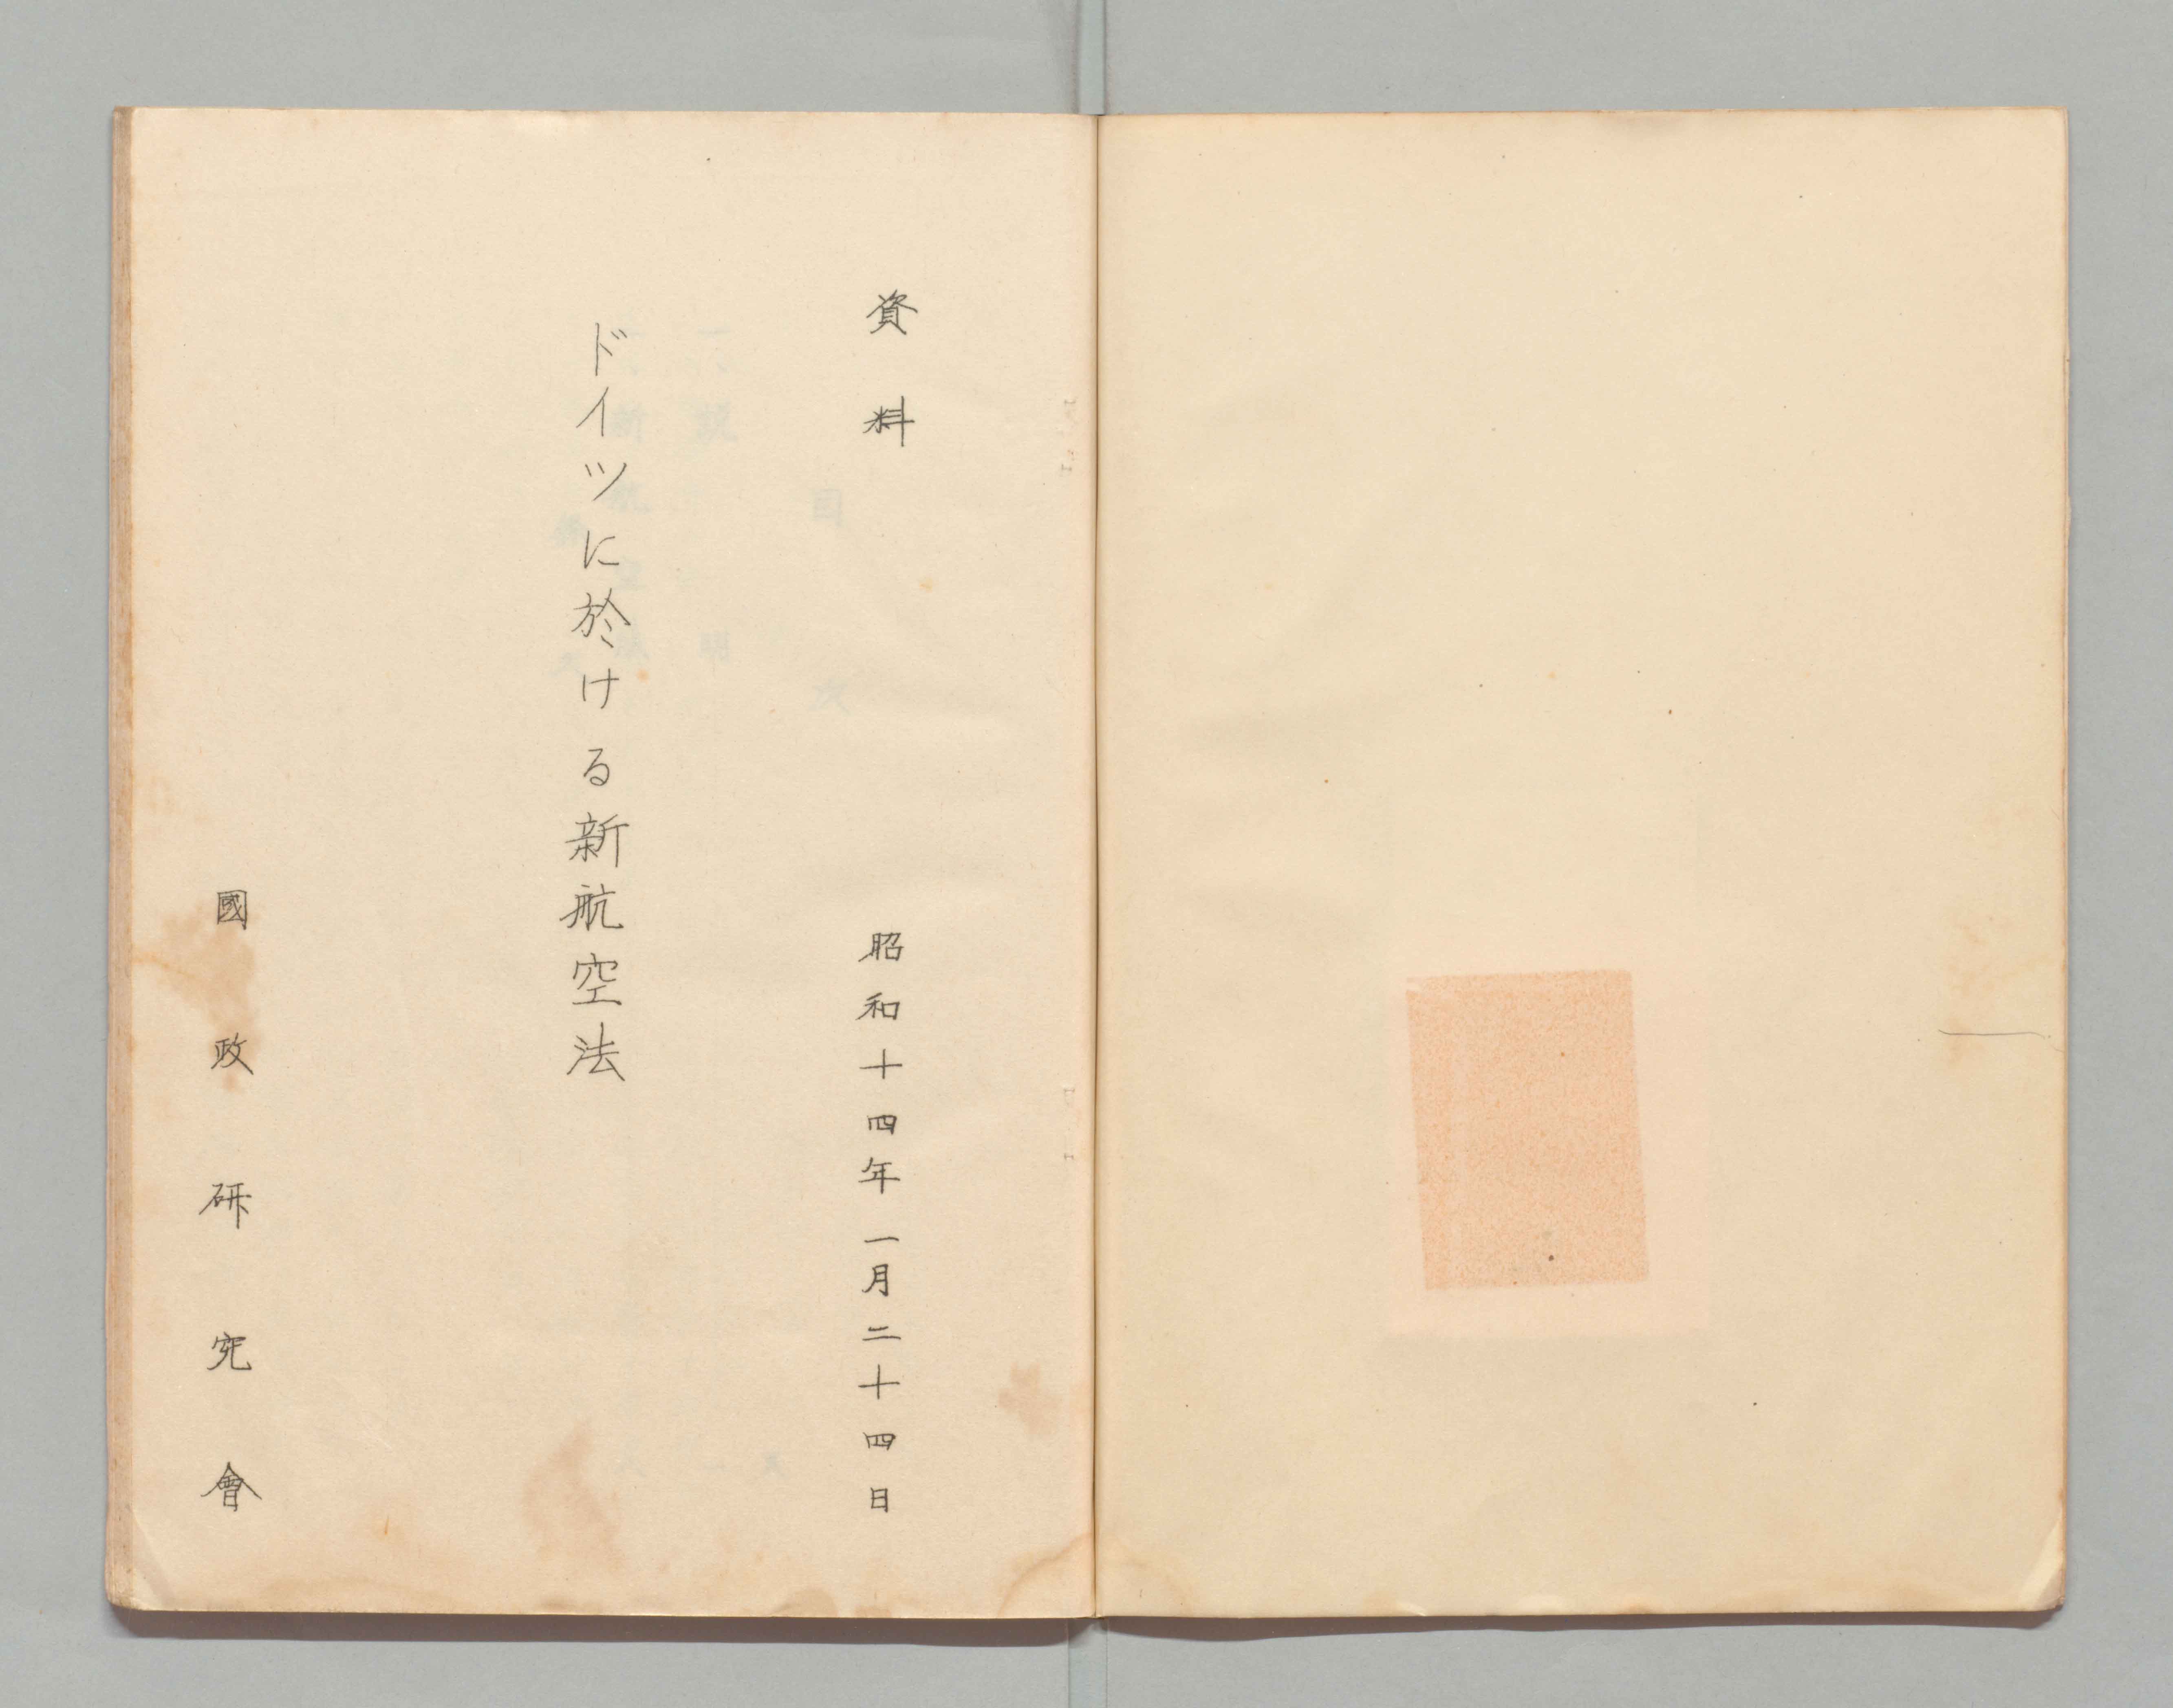 資料
昭和十四年一月二十四日
ドイツに於ける新航空法
國政研究會